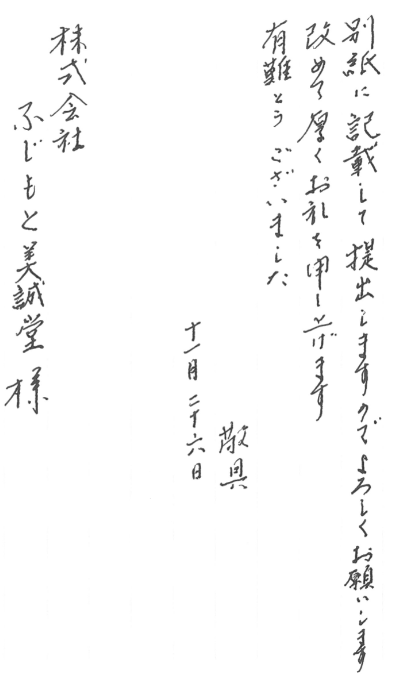 別紙に記載して提出しますのでよろしくお願いします
改めて厚くお礼を申し上げます
有難とうございました
敬具
十一月二十六日
株式会社
ふじもと美誠堂様